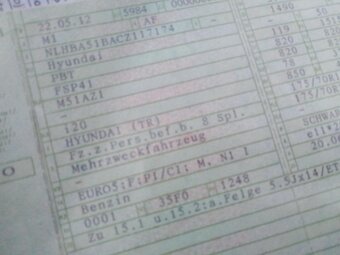 22.05.12 5984 000000
M1 AF
NLHBA51BACZ117174 1490
Hyundai
PBT 119
FSP41 820
M51AZ1 820
78
850
175/70R
120 175/70
HYUNDAI (TR)
Fz.z.Pers.bef.b. 8 Spl. SCHWA
Mehrzweckfahrzeug
20.0
EURO5;P;PI/CI; M, N1 I
Benzin
0001 35F0 1248
Zu 15.1 u.15.2:a.Felge 5.5Jx14/ET